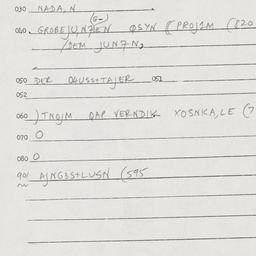 030 NADA, N
(G-)
040 GROBEJU,N7EN QSYN & PROJ2M (820
/DEM JUN7N,
050 DER 04USS+TAJER 051
052
060 )TNOJM 0AP VERNDIK YOSNKA,LE (7
070 0
080 0
90/ AJNG3S+LUSN (595